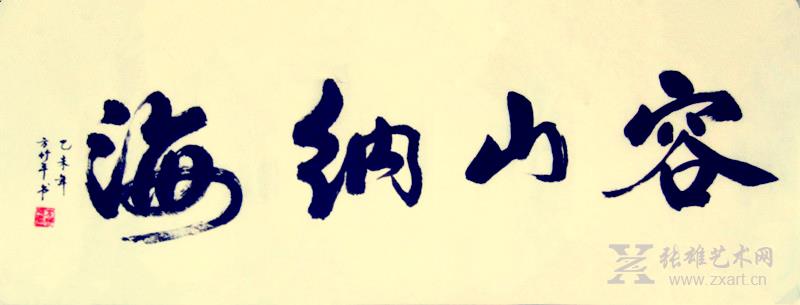 容山纳海
乙未年
方竹平书
张雄艺术网
www.zxart.cn